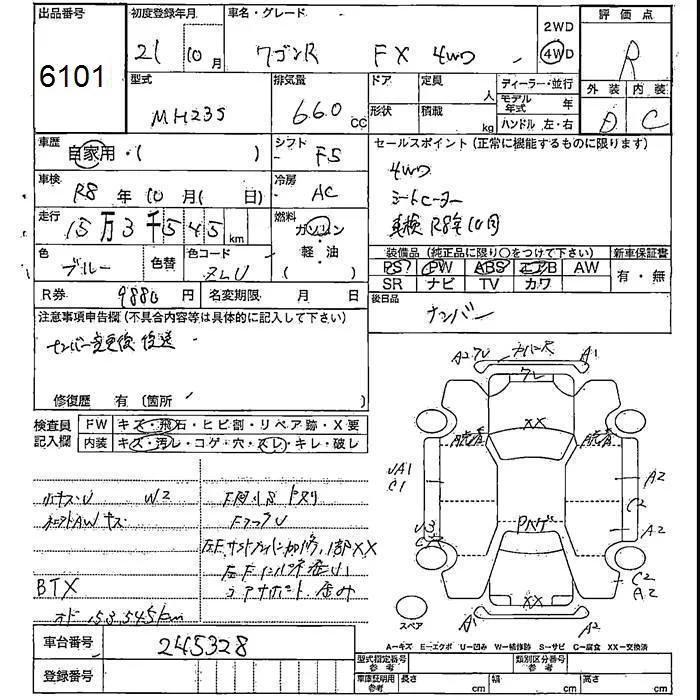 出品番号 初度登録年月 車名・グレード 2WD 評価点
6101 21 10月 ワゴンR FX 4WD 4WD R
型式 排気量 ドア 定員 人 ディーラー・並行 外装 内装
MH23S 660 cc 形状 積載 kg モデル年式 年 D C
ハンドル 左・右
車歴 自家用・( ) シフト F5 セールスポイント (正常に機能するものに限ります)
車検 R8年 10月( 日) 冷房 AC 4WD
シートヒーター
走行 15万3千545 km 燃料 ガソリン・軽・油 ( ) 車検 R8年10月
色 ブルー 色替 色コード ZLU
装備品 (純正品に限り○をつけて下さい) 新車保証書
PS PW ABS エアB AW 有・無
SR ナビ TV カワ
R券 9880円 名変期限 月 日
後日品 ナンバー
注意事項申告欄 (不具合内容等は具体的に記入して下さい)
ナンバー変更後 後送
修復歴 有 (箇所 )
検査員記入欄 FW キズ・飛石・ヒビ割・リペア跡・X要
内装 キズ・汚レ・コゲ・穴・スレ・キレ・破レ
小キズ・U W2
AWキズ
FフックU
BTX
オド 153,545km
A1
フレ
XX
A1
C1
A2
C2
A2
C2
A2
XX
A1
A2
スペア
A－キズ E－エクボ U－凹み W－補修跡 S－サビ C－腐食 XX－交換済
車台番号 245328
登録番号
型式指定番号 参考 類別区分番号 参考
車庫証明用 参考 長さ cm 幅 cm 高さ cm